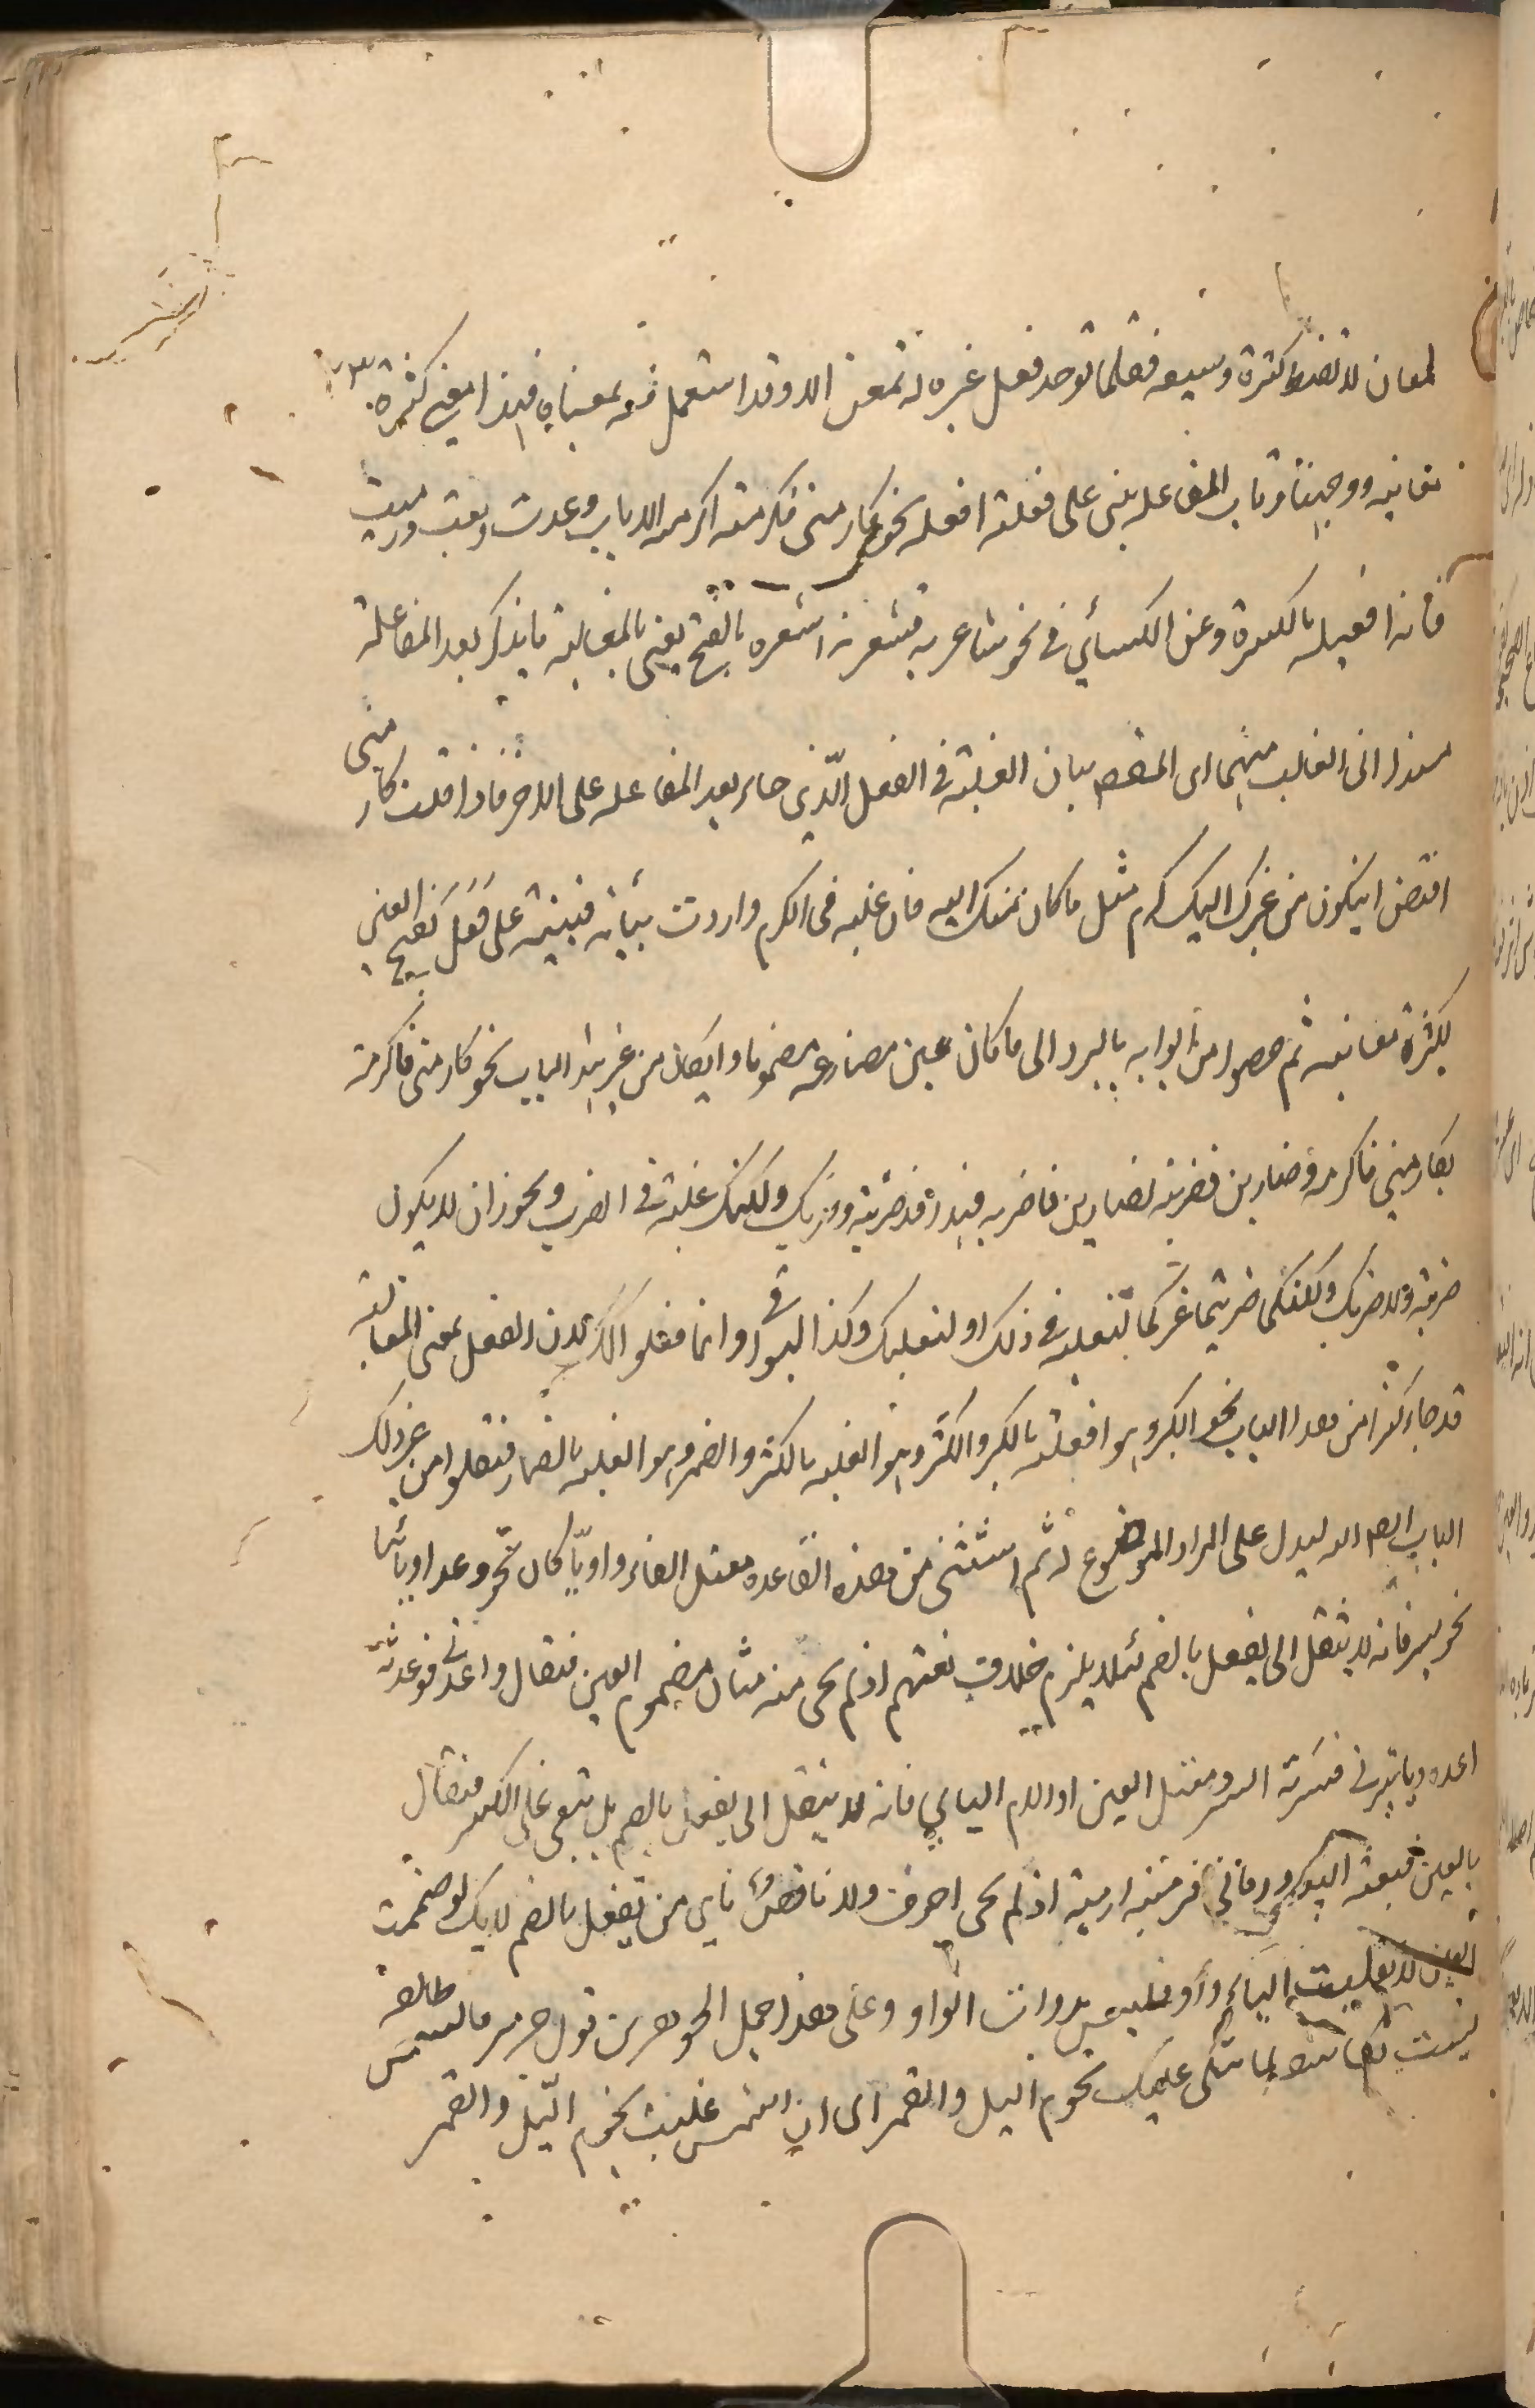 لمعان لا تضبط كثرة وسعه فقلما توجد فعل غيره له معنى الا وقد استعمل فعل بمعناه فهذا معنى كثرة
معانيه ووجهنا وباب المغالبه يبنى على فعلته افعله نحو كارمنى فكرمته اكرمه الا باب وعدت وبعت ورميت
فانه افعله بالكسرة وعن الكسائي في نحو شاعرنه فشعرنه اشعره بالفتح يعنى بالمغالبة ما يذكر بعد المفاعلة
مسندا الى الغالب منهما اى المقصد بيان الغلبة في الفعل الّذي جاء بعد المفاعله على الاخر فاذا قلت كارمنى
اقتضى ان يكون من غيرك اليك كرم مثل ما كان منك اليه فان غلبه فى الكرم واردت بيانه فبنيته على فَعَلَ بفتح العين
لكثرة معانيه ثم خصوا من ابوابه بالرد الى ما كان عين مضارعه مضموما وان كان من غير هذا الباب نحو كارمنى فاكرمته
يكارمني فاكرمه وضاربنى فضربته يضاربنى فاضربه فهذا قد ضربته وضربك ولكنك غلبته في الضرب ويجوز ان لا يكون
ضربته ولا ضربك ولكنكما ضربتما غيركما لتغلبه في ذلك او ليغلبك وكذا البواقى وانما فعلوا ذلك لان الفعل بمعنى المغالبة
قد جاء كثيرا من هذا الباب نحو الكبر وهو افعلته بالكبر والكثر وهو الغلبه بالكثر والضمر وهو الغلبه بالضمار فنقلوا من غير ذلك
الباب اليه ليدل على المراد الموضوع له ثم استثنى من هذه القاعده معتل الفاء واويّا كان نحو وعد او يائيا
نحو يسر فانه لا ينقل الى يفعل بالضم لئلا يلزم خلاف لغتهم اذ لم يجى منه مثال مضموم العين فيقال واعدنى فوعدته
اعده وياسرنى فيسرته ايسر ومعتل العين او اللام اليايي فانه لا ينقل الى يفعل بالضم بل يبقى على الكسر فيقال
بايعنى فبعته ابيعه وراماني فرميته ارميه اذ لم يجى اجوف ولا ناقص يائي من يفعل بالضم لانك لو ضممت
العين لانقلبت الياء واوا بذوات الواو وعلى هذا حمل الجوهرى قول جرير فالشمس طالعة
ليست بكاسفة تبكى عليك نجوم الليل والقمر اى ان الشمس غلبت نجوم الّليل والقمر